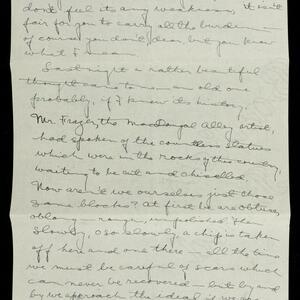 don't feel its any weakness, it isn't
fair for you to carry all the burden
of course you don't dear but you know
what I mean
Last night a rather beautiful
thought came to me, an old one
probably, if I knew its history.
Mr. Frazer, the MacDougal Alley artist,
had spoken of the countless statues
which were in the rocks of this country,
waiting to be cut and chiselled.
Now aren't we ourselves just those
same blocks? At first be are obtuse,
oblong - rough, unpolished. Then
slowly, o so slowly a chip is taken
off here and one there - all the time
we must be careful of scars which
can never be recovered - but by and
by we approach the ideal